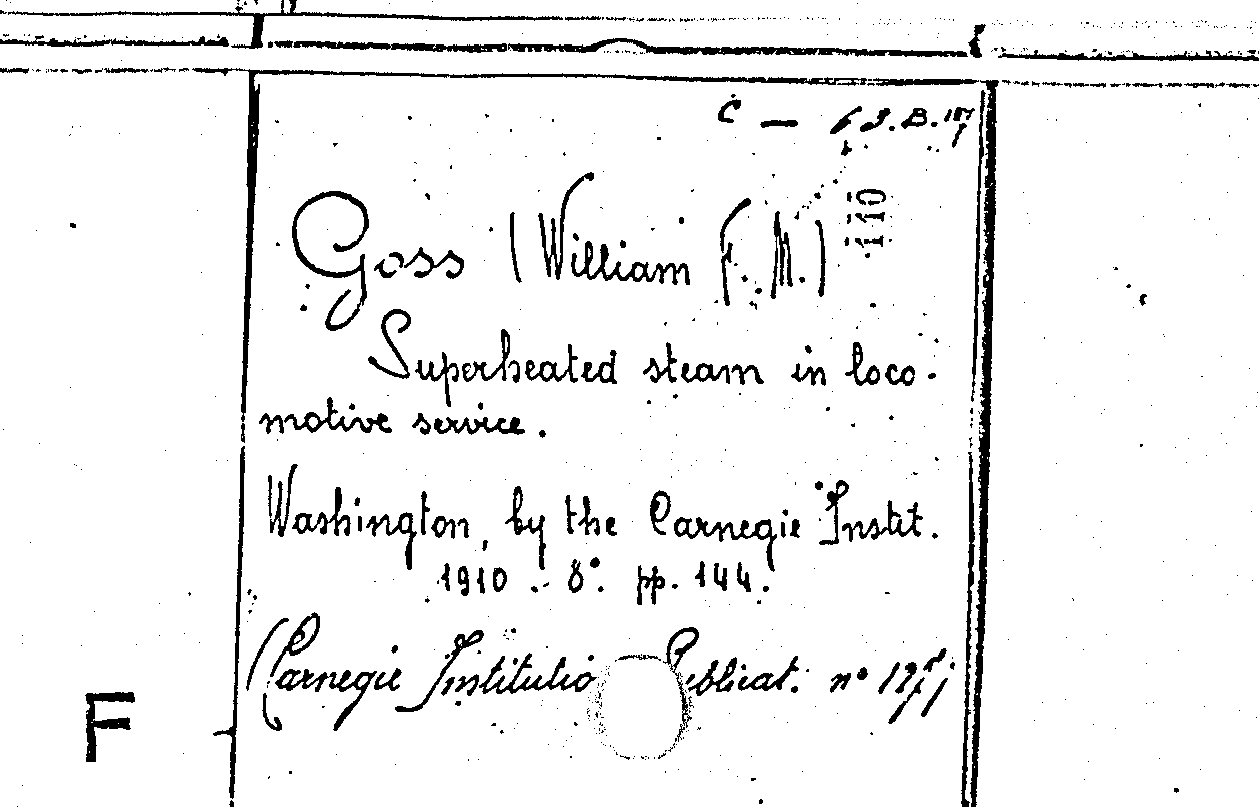 C — 63.B.187
110
Goss (William F. M.)
Superheated steam in loco-
motive service.
Washington, by the Carnegie Instit.
1910 . - 8°. pp. 144.
(Carnegie Institutio Publicat. n°
F